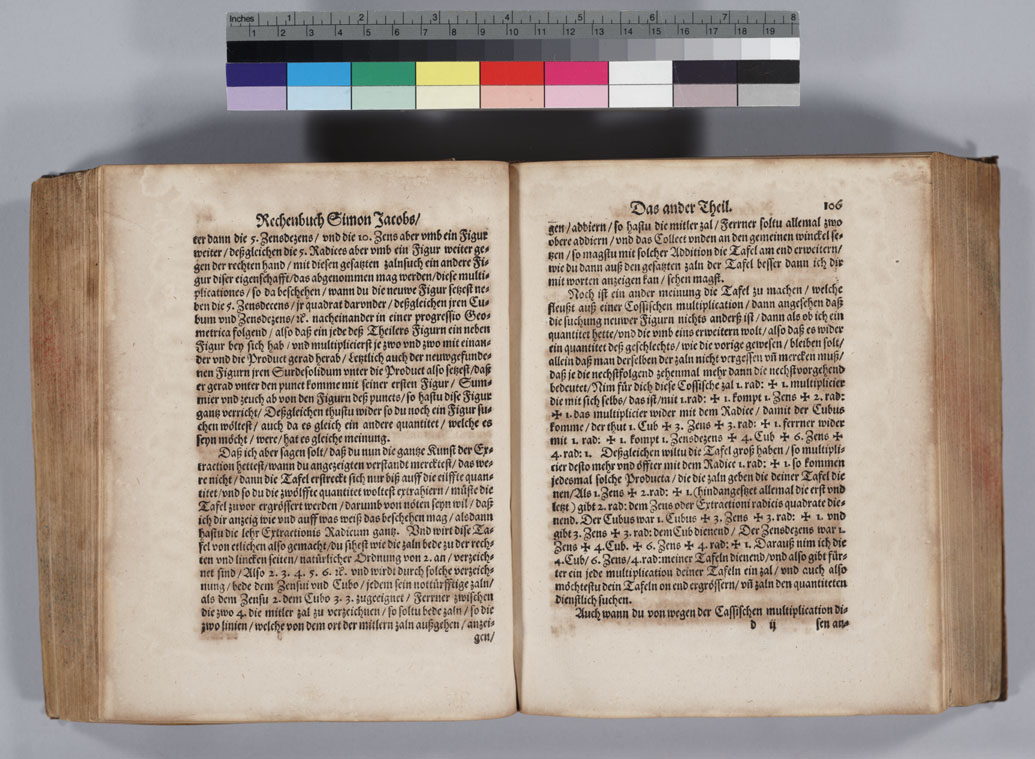 Inches 1 2 3 4 5 6 7 8
1 2 3 4 5 6 7 8 9 10 11 12 13 14 15 16 17 18 19
Rechenbuch Simon Jacobs/
ter dann die 5. Zensdezens/ vnd die 10. Zens aber vmb ein Figur
weiter/ deßgleichen die 5. Radices aber vmb ein Figur weiter ge-
gen der rechten hand/ mit diesen gesatzten zaln such ein andere Fi-
gur diser eigenschafft/ das abgenommen mag werden/ diese multi-
plicationes/ so da beschehen/ wann du die neuwe Figur setzest ne-
ben die 5. Zensdecens/ jr quadrat darunder/ deßgleichen jren Cu-
bum vnd Zensdezens/ ꝛc. nacheinander in einer progressio Geo-
metrica folgend/ also daß ein jede deß Theilers Figurn ein neben
Figur bey sich hab/ vnd multiplicierst je zwo vnd zwo mit einan-
der vnd die Product gerad herab/ letztlich auch der neuwgefunde-
nen Figurn jren Surdesolidum vnter die Product also setzest/ daß
er gerad vnter den punct komme mit seiner ersten Figur/ Sum-
mier vnd zeuch ab von den Figurn deß puncts/ so hastu dise Figur
gantz verricht/ Deßgleichen thustu wider so du noch ein Figur su-
chen wöltest/ auch da es gleich ein andere quantitet/ welche es
seyn möcht/ were/ hat es gleiche meinung.
Daß ich aber sagen solt/ daß du nun die gantze Kunst der Ex-
traction hettest/ wann du angezeigten verstandt mercktest/ das we-
re nicht/ dann die Tafel erstreckt sich nur biß auff die eilffte quan-
titet/ vnd so du die zwölffte quantitet woltest extrahiern/ müste die
Tafel zuvor ergrössert werden/ darumb von nöten seyn wil/ daß
ich dir anzeig wie vnd auff was weiß das beschehen mag/ alsdann
hastu die lehr Extractionis Radicum gantz. Vnd wirt dise Ta-
fel von etlichen also gemacht/ du sihest wie die zaln bede zu der rech-
ten vnd lincken seiten/ natürlicher Ordnung von 2. an/ verzeich-
net sind/ Also 2. 3. 4. 5. 6. ꝛc. vnd wirdt durch solche verzeich-
nung/ bede dem Zensui vnd Cubo/ jedem sein notturfftige zaln/
als dem Zensu 2. dem Cubo 3. 3. zugeeignet/ Ferrner zwischen
die zwo 4. die mitler zal zu verzeichnen/ so soltu bede zaln/ so die
zwo linien/ welche von dem ort der mitlern zaln außgehen/ anzei-
gen/
Das ander Theil. 106
gen/ addiern/ so hastu die mitler zal/ Ferrner soltu allemal zwo
obere addiern/ vnd das Collect vnden an den gemeinen winckel se-
tzen/ so magstu mit solcher Addition die Tafel am end erweitern/
wie du dann auß den gesatzten zaln der Tafel besser dann ich dir
mit worten anzeigen kan/ sehen magst.
Noch ist ein ander meinung die Tafel zu machen/ welche
fleußt auß einer Cossischen multiplication/ dann angesehen daß
die suchung neuwer Figurn nichts anderß ist/ dann als ob ich ein
quantitet hette/ vnd die vmb eins erweitern wolt/ also daß es wider
ein quantitet deß geschlechts/ wie die vorige gewesen/ bleiben solt/
allein daß man derselben der zaln nicht vergessen vñ mercken muß/
daß je die nechstfolgend zehenmal mehr dann die nechstvorgehend
bedeutet/ Nim für dich diese Cossische zal 1. rad: ✠ 1. multiplicier
die mit sich selbs/ das ist/ mit 1. rad: ✠ 1. kompt 1. Zens ✠ 2. rad:
✠ 1. das multiplicier wider mit dem Radice/ damit der Cubus
komme/ der thut 1. Cub ✠ 3. Zens ✠ 3. rad: ✠ 1. ferrner wider
mit 1. rad: ✠ 1. kompt 1. Zensdezens ✠ 4. Cub ✠ 6. Zens ✠
4. rad: 1. Deßgleichen wiltu die Tafel groß haben/ so multipli-
cier desto mehr vnd öffter mit dem Radice 1. rad: ✠ 1. so kommen
jedesmal solche Producta/ die die zaln geben die deiner Tafel die
nen/ Als 1. Zens ✠ 2. rad: ✠ 1. (hindangesetzt allemal die erst vnd
letzt) gibt 2. rad: dem Zens oder Extractioni radicis quadrate die-
nend. Der Cubus war 1. Cubus ✠ 3. Zens ✠ 3. rad: ✠ 1. vnd
gibt 3. Zens ✠ 3. rad: dem Cub dienend/ Der Zensdezens war 1.
Zens ✠ 4. Cub. ✠ 6. Zens ✠ 4. rad: ✠ 1. Darauß nim ich die
4. Cub/ 6. Zens/ 4. rad: meiner Tafeln dienend/ vnd also gibt für-
ter ein jede multiplication deiner Tafeln ein zal/ vnd auch also
möchtestu dein Tafeln on end ergrössern/ vñ zaln den quantiteten
dienstlich suchen.
Auch wann du von wegen der Cassischen multiplication di-
d ij sen an-